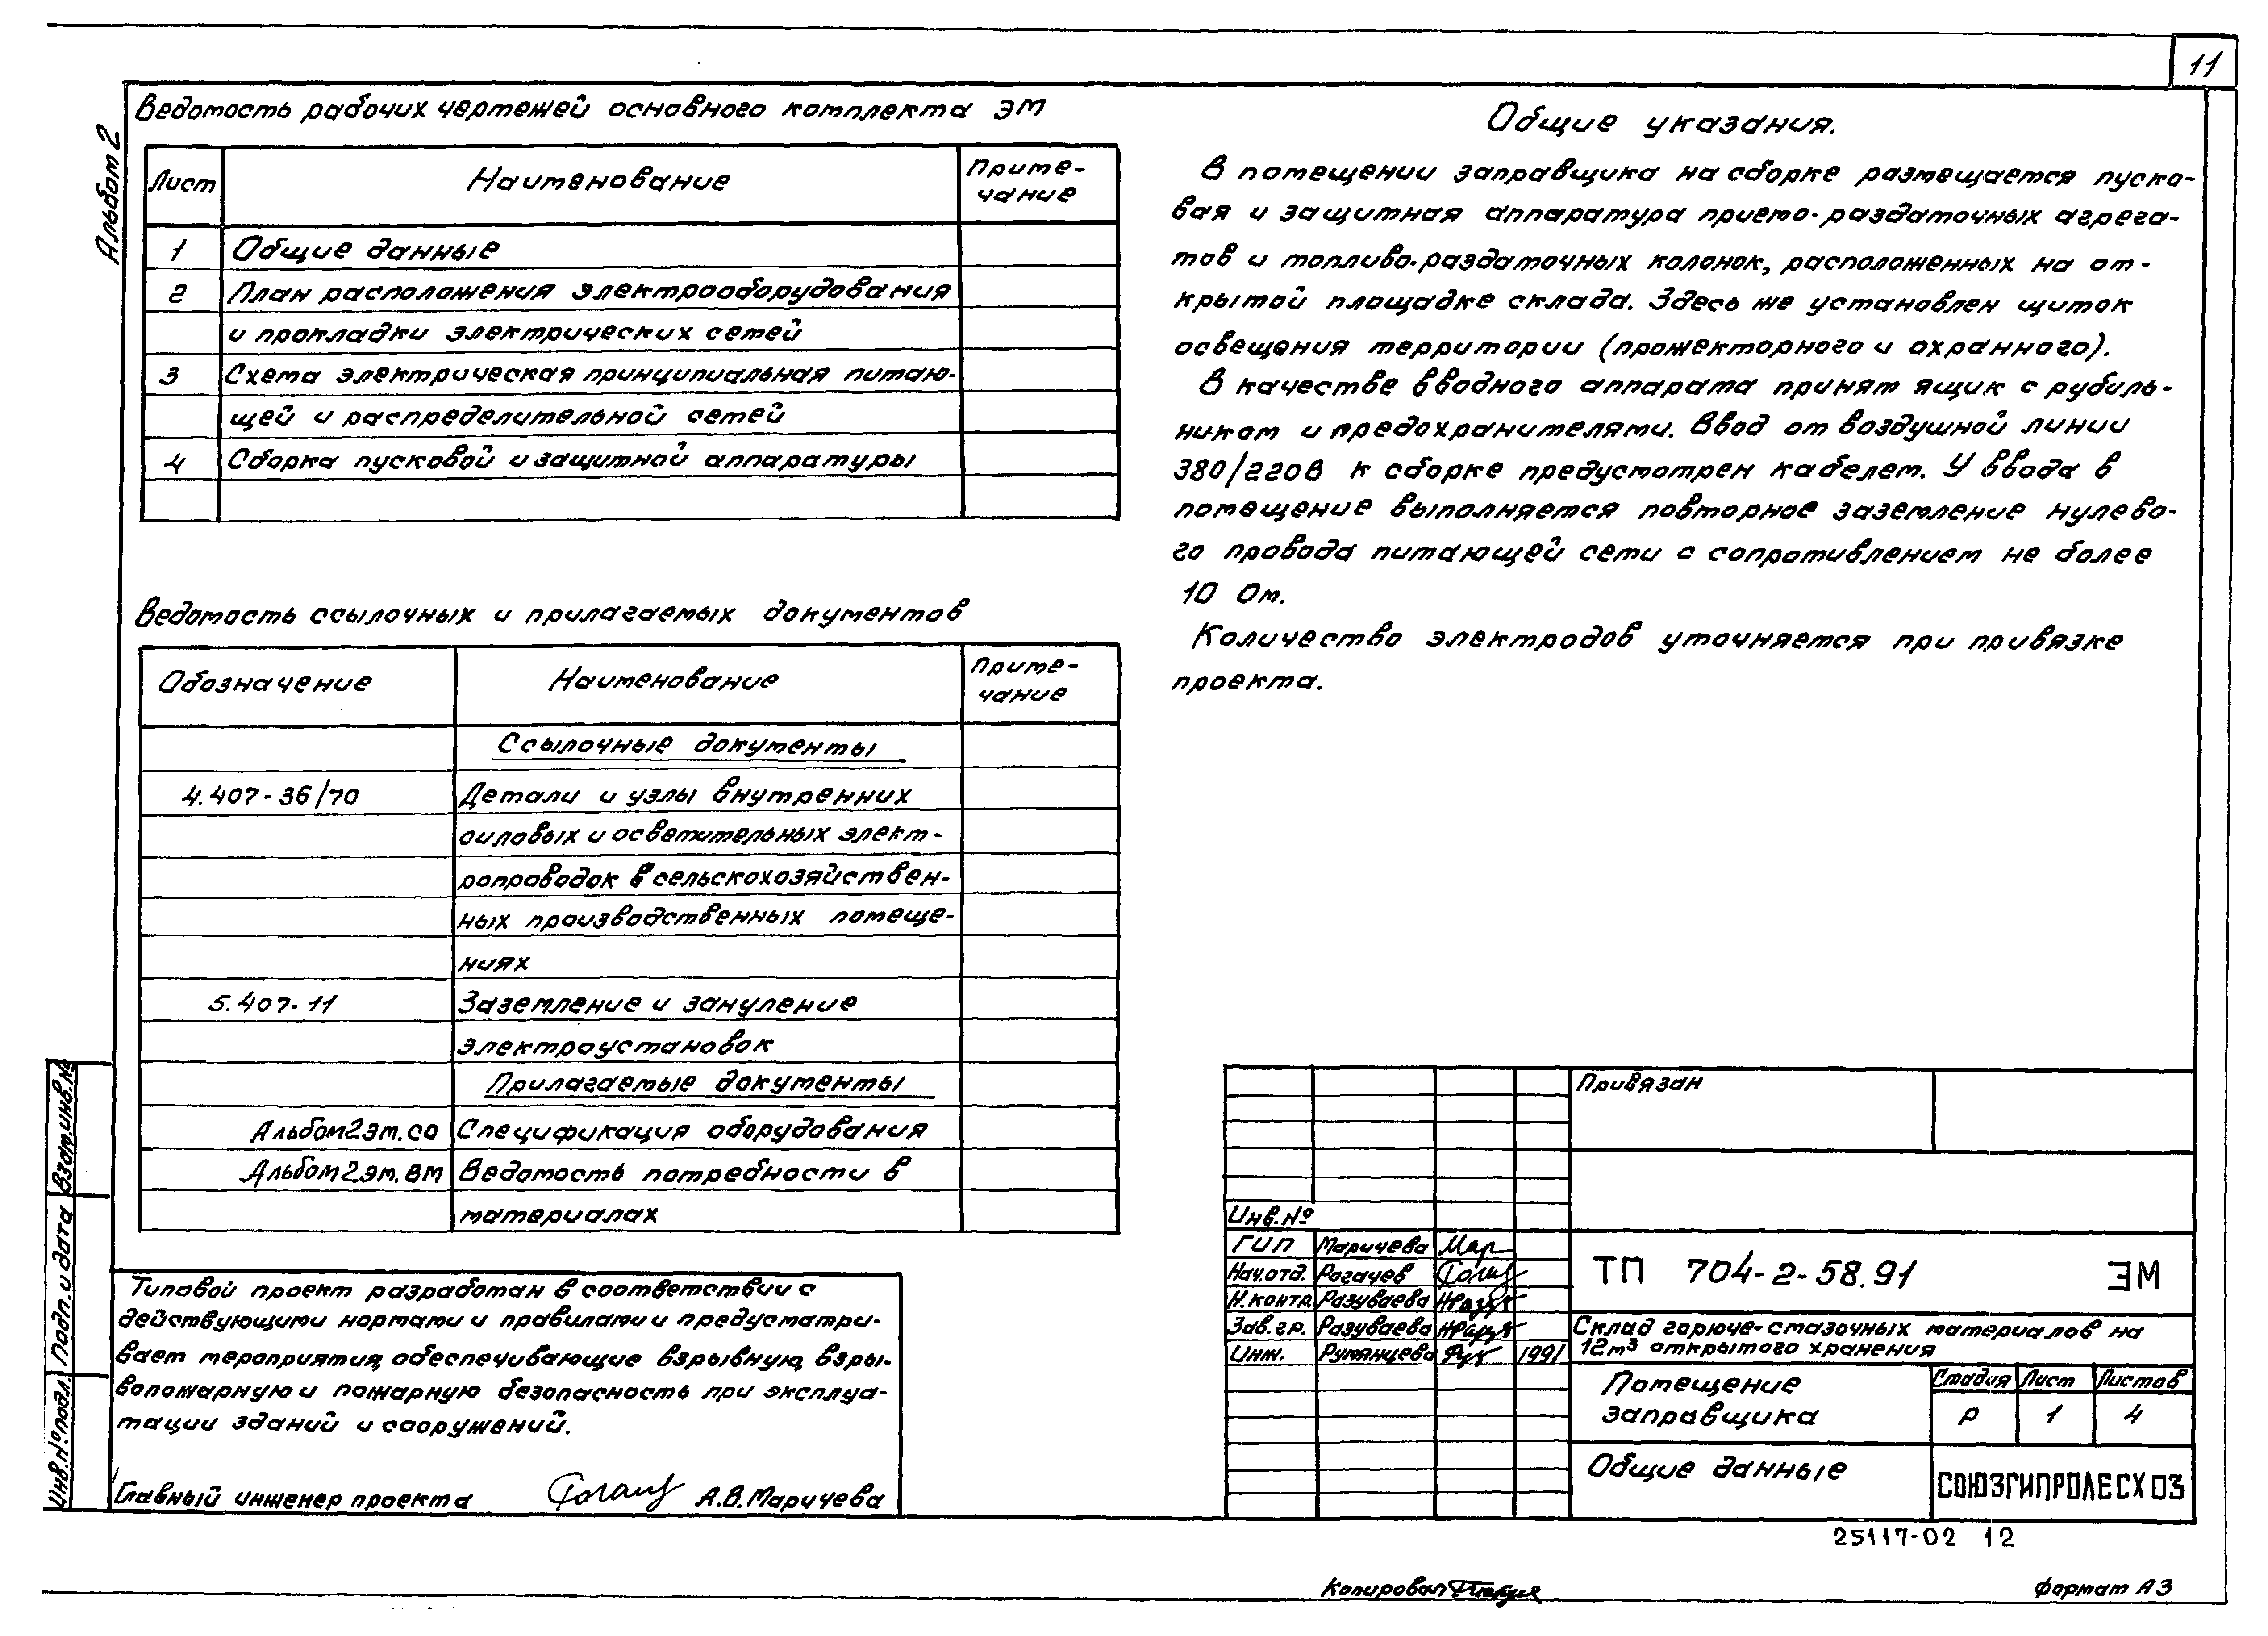 11
Альбом 2
Ведомость рабочих чертежей основного комплекта ЭМ
Лист
Наименование
Приме-
чание
1 Общие данные
2 План расположения электрооборудования
и прокладки электрических сетей
3 Схема электрическая принципиальная питаю-
щей и распределительной сетей
4 Сборка пусковой и защитной аппаратуры
Ведомость ссылочных и прилагаемых документов
Обозначение
Наименование
Приме-
чание
Ссылочные документы
4.407-36/70 Детали и узлы внутренних
силовых и осветительных элект-
ропроводок в сельскохозяйствен-
ных производственных помеще-
ниях
5.407-11 Заземление и зануление
электроустановок
Прилагаемые документы
Альбом 2 эм.со Спецификация оборудования
Альбом 2 эм.ВМ Ведомость потребности в
материалах
Типовой проект разработан в соответствии с
действующими нормами и правилами и предусматри-
вает мероприятия, обеспечивающие взрывную, взры-
вопожарную и пожарную безопасность при эксплуа-
тации зданий и сооружений.
Главный инженер проекта А.В.Маричева
Общие указания.
В помещении заправщика на сборке размещается пуско-
вая и защитная аппаратура приемо-раздаточных агрега-
тов и топливо-раздаточных колонок, расположенных на от-
крытой площадке склада. Здесь же установлен щиток
освещения территории (прожекторного и охранного).
В качестве вводного аппарата принят ящик с рубиль-
ником и предохранителями. Ввод от воздушной линии
380/220В к сборке предусмотрен кабелем. У ввода в
помещение выполняется повторное заземление нулево-
го провода питающей сети с сопротивлением не более
10 Ом.
Количество электродов уточняется при привязке
проекта.
Привязан
Инв.№
ГИП Маричева Мар
Нач.отд. Рогачев
Н.контр. Разуваева
Зав.гр. Разуваева
Инж. Румянцева 1991
ТП 704-2-58.91 ЭМ
Склад горюче-смазочных материалов на
12м³ открытого хранения
Помещение
заправщика
Стадия Лист Листов
Р 1 4
Общие данные
СОЮЗГИПРОЛЕСХОЗ
Взам.инв.№
Подп. и дата
Инв.№ подл.
25117-02 12
Копировал
формат А3